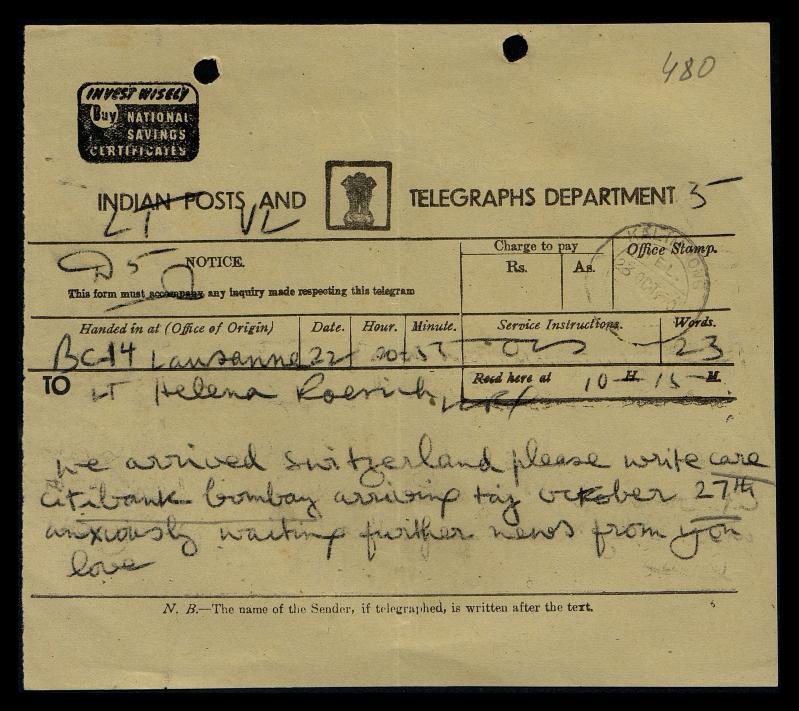 480
INVEST WISELY
Buy NATIONAL
SAVINGS
CERTIFICATES
INDIAN POSTS AND TELEGRAPHS DEPARTMENT 5
LT VL
D 5
NOTICE.
This form must accompany any inquiry made respecting this telegram
Charge to pay
Rs. As.
Office Stamp.
KALIMPONG
Handed in at (Office of Origin) Date. Hour. Minute. Service Instructions. Words.
BC14 Lausanne 22 20 55 23
TO LT Helena Roerich
Recd here at 10 H 15 M
we arrived switzerland please write care
citibank bombay arriving taj october 27th
anxiously waiting further news from you
love
N. B.—The name of the Sender, if telegraphed, is written after the text.